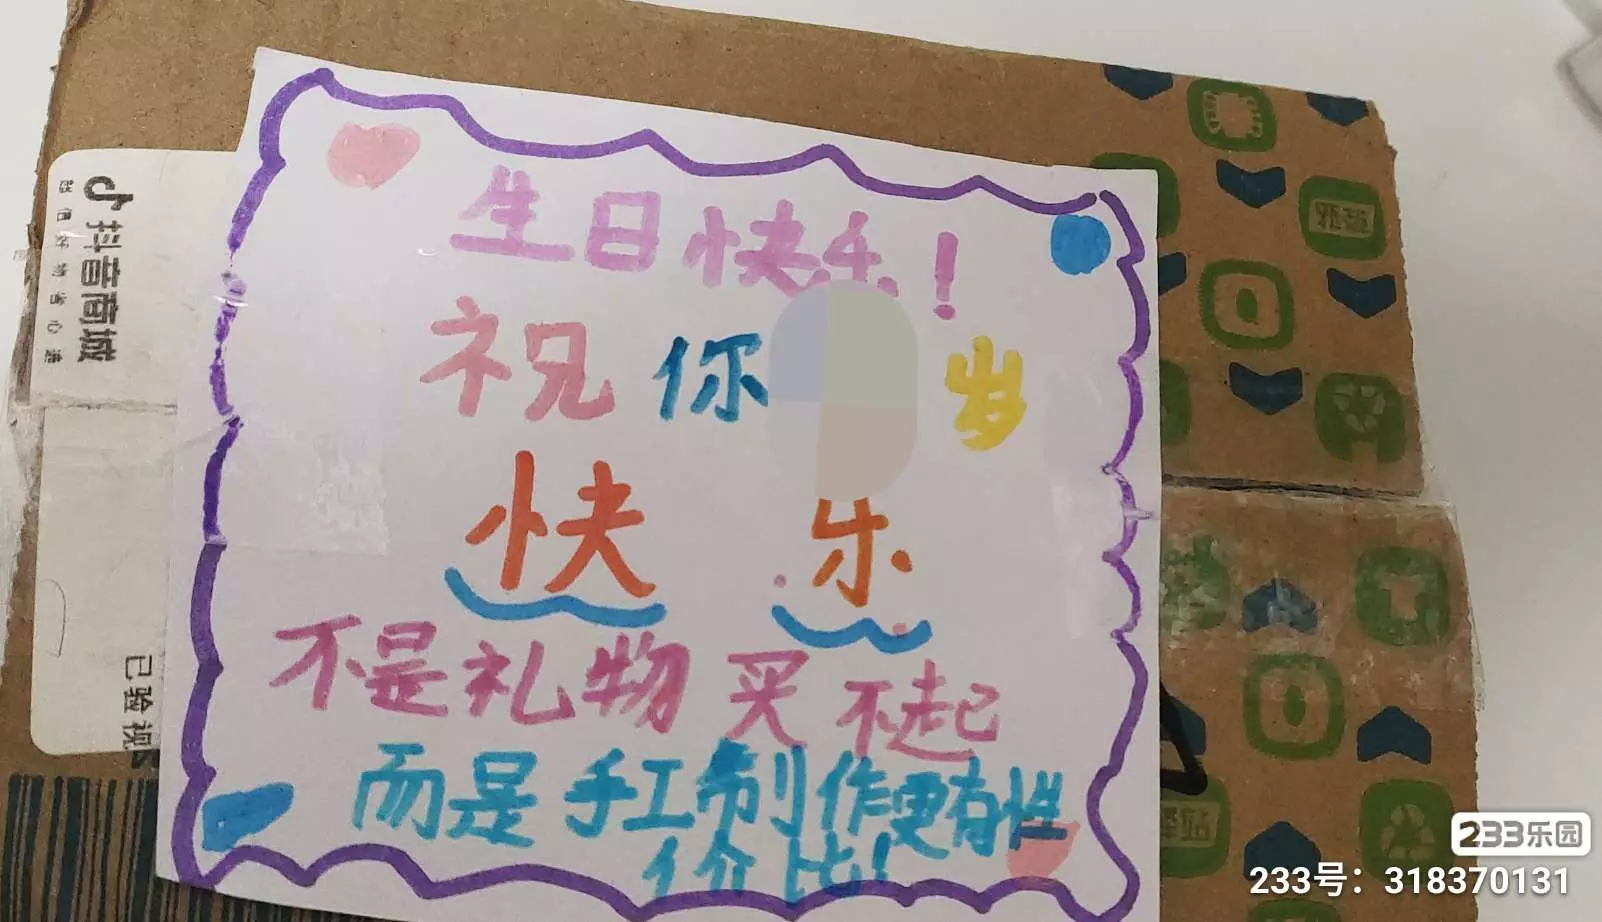 生日快乐！
祝你 岁
快 乐
不是礼物买不起
而是手工制作更有性
价比！
抖音商城
超值好物省心选
已验视
驿站
233乐园
233号：318370131